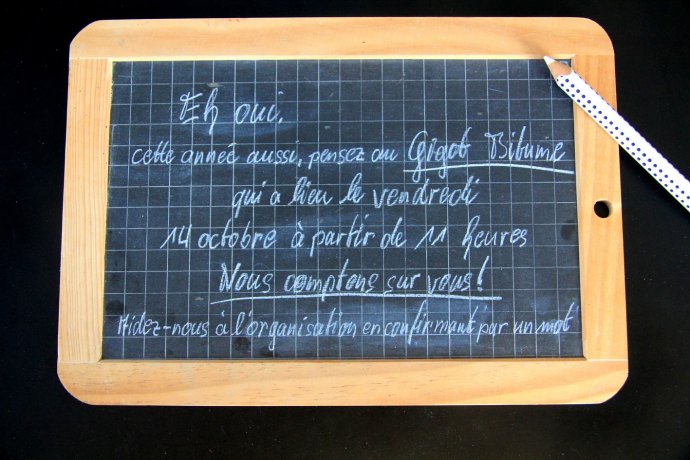 Eh oui,
cette année aussi, pensez au Gigot Bitume
qui a lieu le vendredi
14 octobre à partir de 11 heures
Nous comptons sur vous!
Aidez-nous à l'organisation en confirmant par un mot